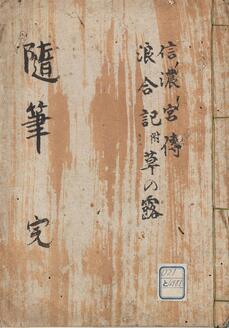 信濃宮傳
浪合記附草の露
隨筆 完